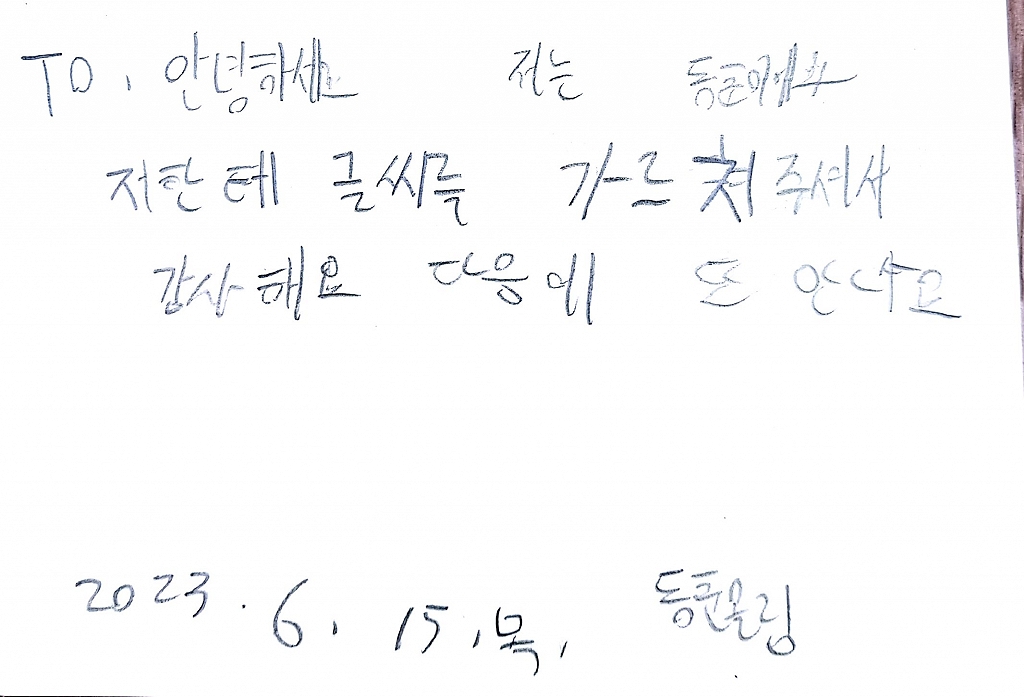 TO. 안녕하세요 저는 동준이예요
저한테 글씨를 가르쳐 주셔서
감사해요 다음에 또 만나요
2023. 6. 15. 목. 동준올림